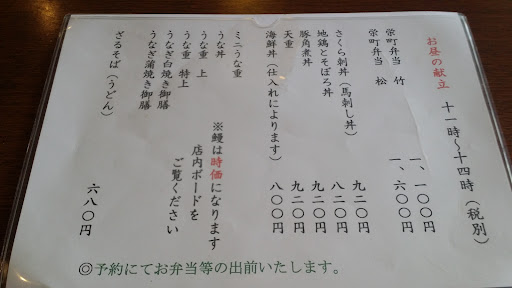 お昼の献立 十一時~十四時(税別)
栄町弁当 竹 一、一〇〇円
栄町弁当 松 一、六〇〇円
さくら刺丼(馬刺し丼) 九二〇円
地鶏とそぼろ丼 八二〇円
勝角煮丼 九二〇円
天重 九二〇円
海鮮丼(仕入れによります) 八〇〇円
ミニうな重
うな丼
うな重 上
うな重 特上
うなぎ白焼き御膳
うなぎ蒲焼き御膳
※鰻は時価になります
店内ボードを
ご覧ください
ざるそば(うどん) 六八〇円
◎予約にてお弁当等の出前いたします。